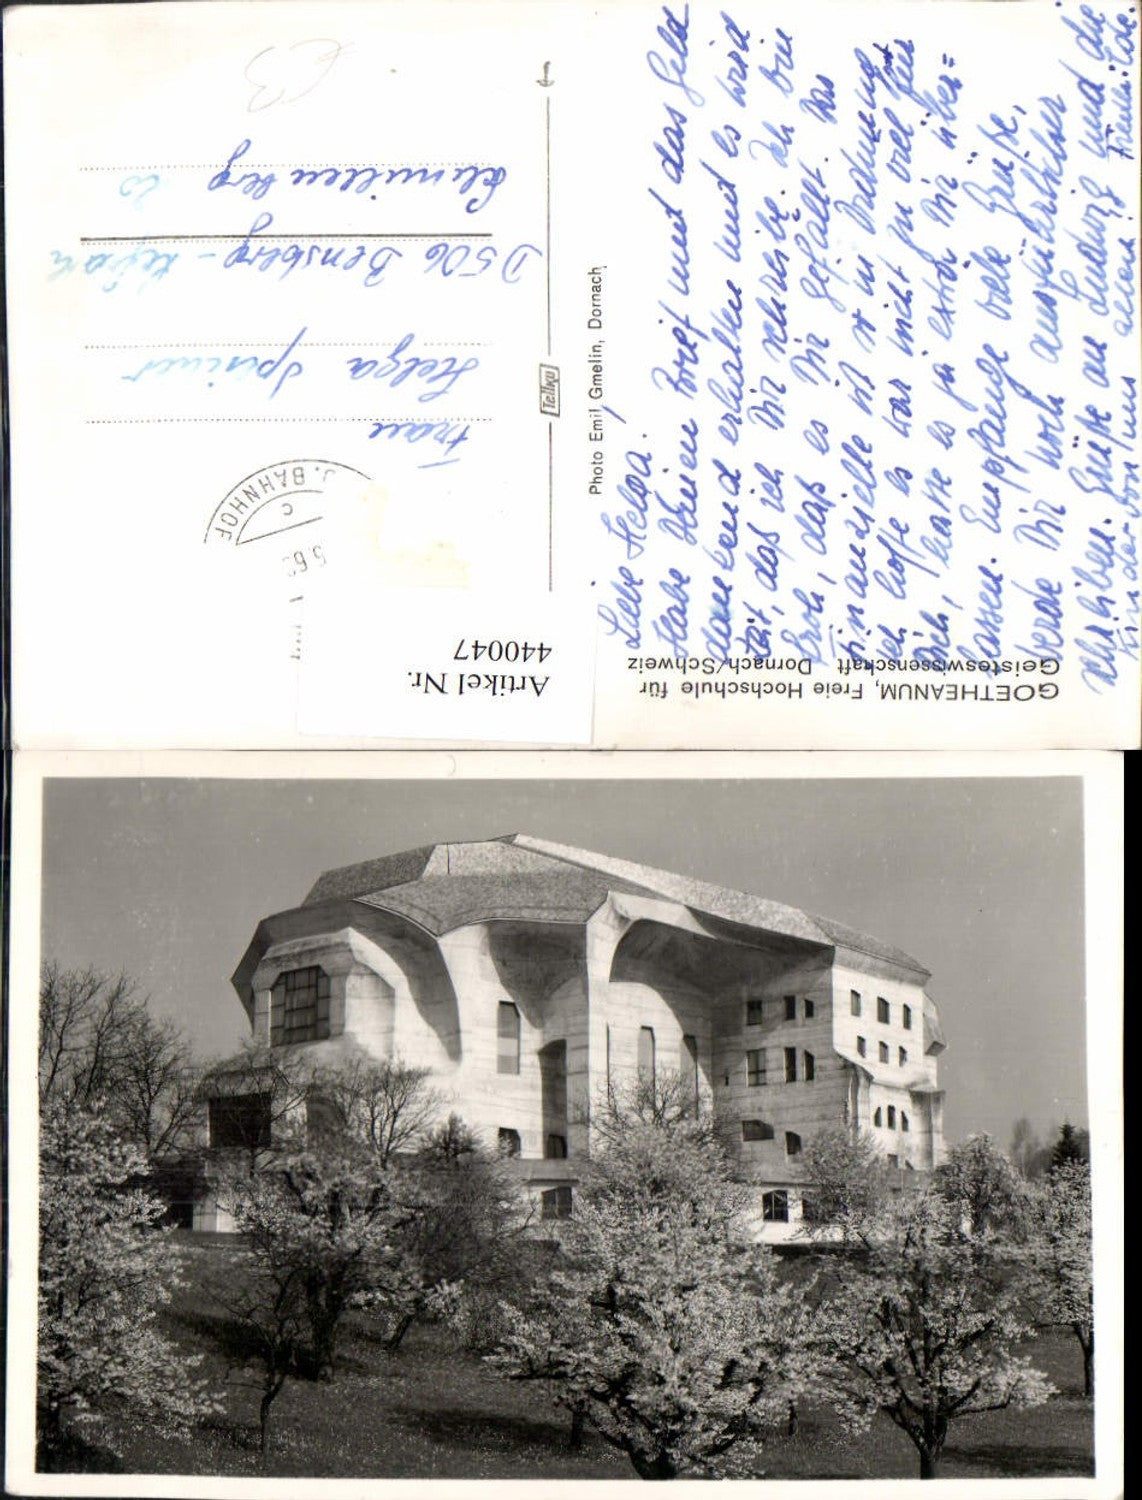 GOETHEANUM, Freie Hochschule für
Geisteswissenschaft Dornach/Schweiz
Liebe Helga!
Habe Deinen Brief und das Geld
dankend erhalten und es wird
Zeit, daß ich Dir schreibe. Ich bin
froh, daß es Dir gefällt. Das
Finanzielle ist so in Ordnung
ich hoffe es war nicht zu viel für
Dich, hatte es ja extra Dir über=
lassen. Empfange viele Grüße,
werde Dir noch ausführlicher
schreiben. Grüße an Ludwig und die
Kinder von uns allen
Photo Emil Gmelin, Dornach
Tellko
J. BAHNHOF
c
Frau
Helga
D 506 Bensberg -
Artikel Nr.
440047